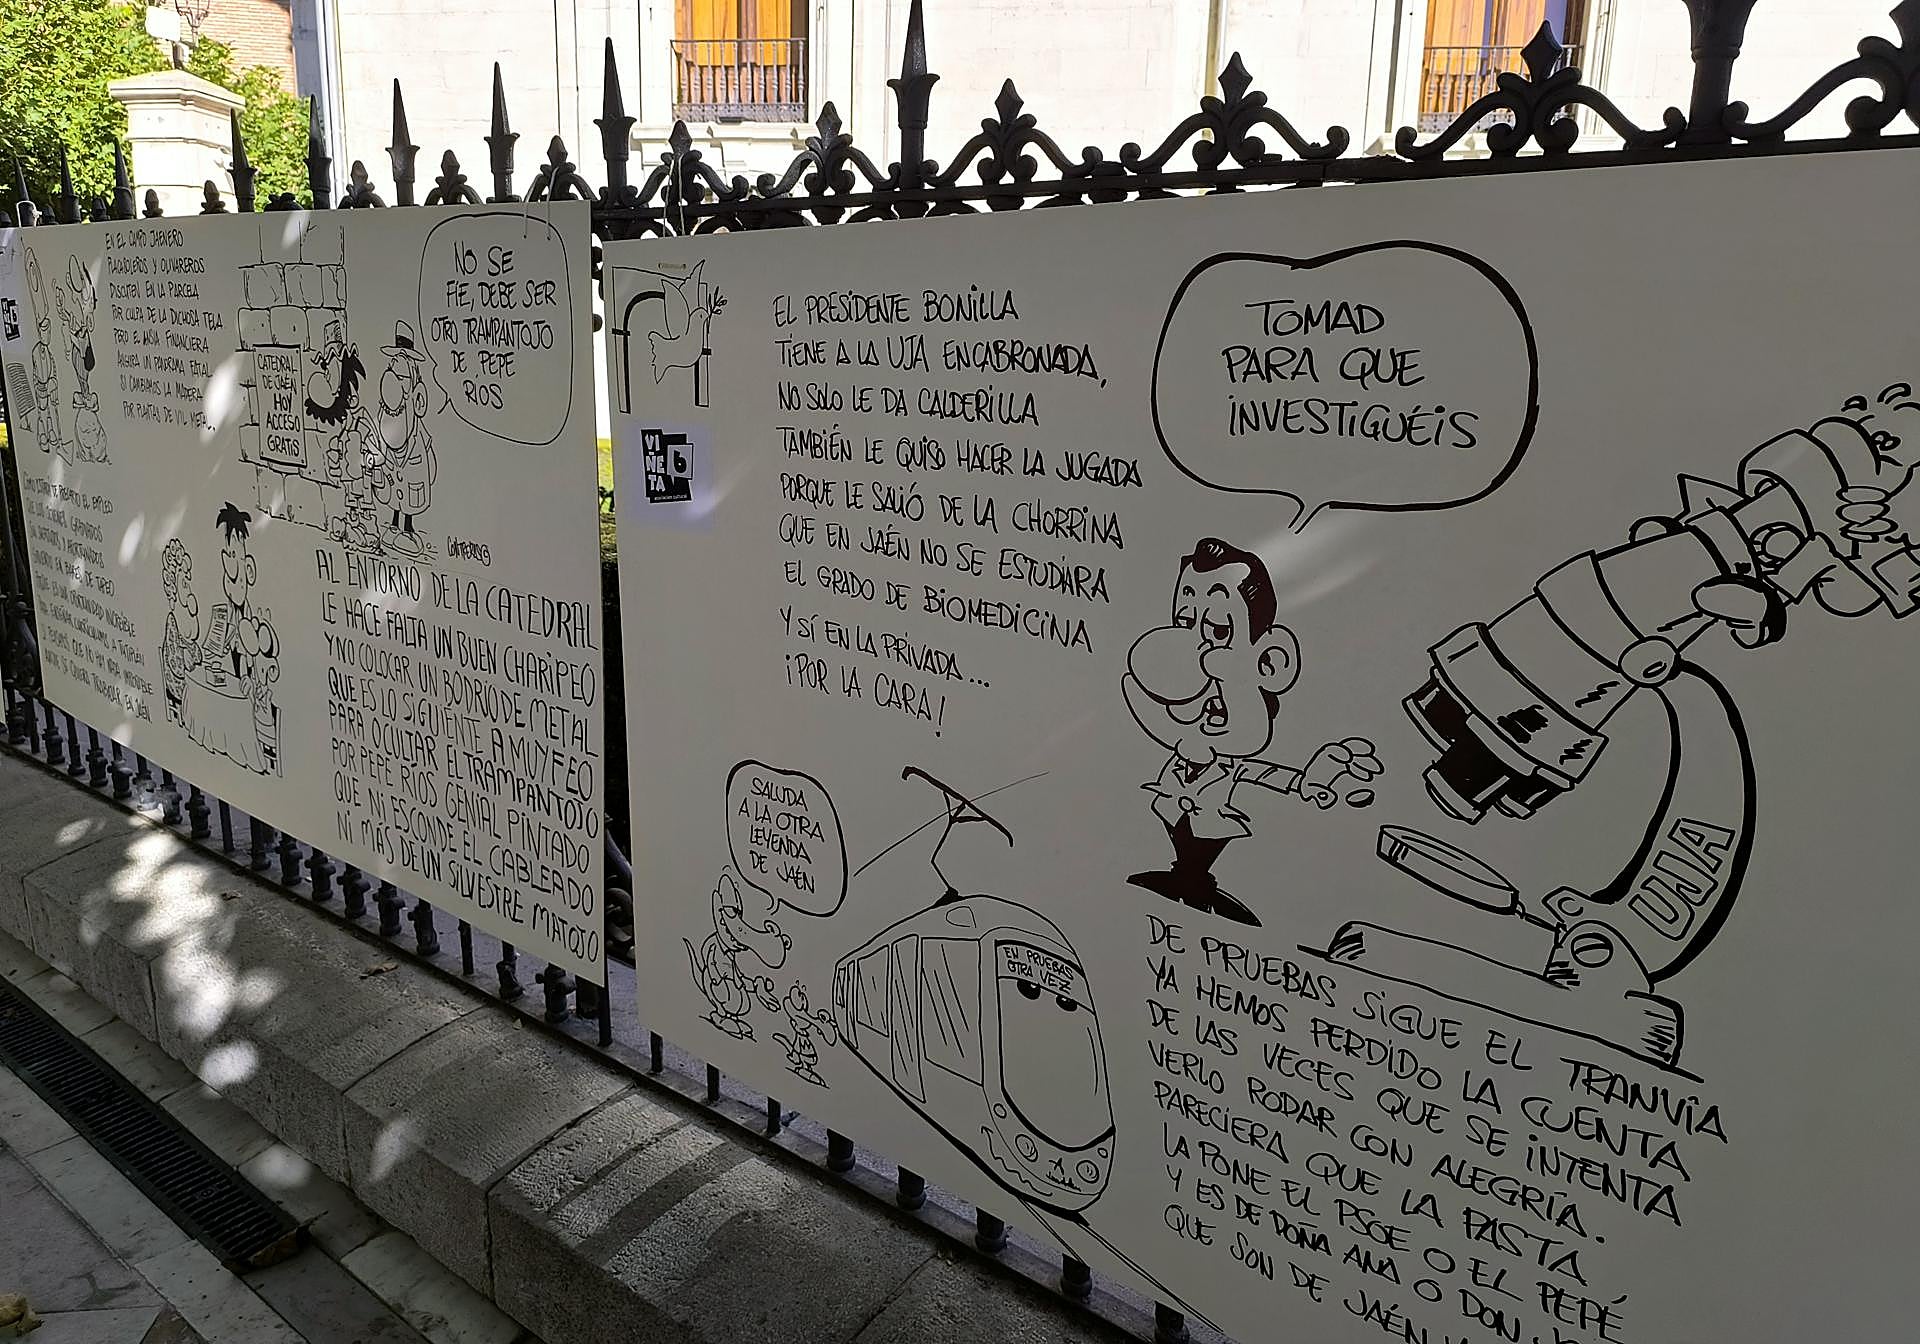 EN EL CAMPO JAENERO
PLACASOLEROS Y OLIVAREROS
DISCUTEN EN LA PARCELA
POR CULPA DE LA DICHOSA TELA.
PERO EL ANSIA FINANCIERA
AUGURA UN PANORAMA FATAL
SI CAMBIAMOS LA MADERA
POR PLANTAS DE VIL METAL.
CATEDRAL
DE JAÉN
HOY
ACCESO
GRATIS
NO SE
FÍE, DEBE SER
OTRO TRAMPANTOJO
DE PEPE
RÍOS
SIRVIENDO EN BARES DE TAPEO
QUE ES UNA OPORTUNIDAD INCREÍBLE
NADIE SE QUIERA TRABAJAR EN JAÉN
AL ENTORNO DE LA CATEDRAL
LE HACE FALTA UN BUEN CHARIPEO
Y NO COLOCAR UN BODRIO DE METAL
QUE ES LO SIGUIENTE A MUY FEO
PARA OCULTAR EL TRAMPANTOJO
POR PEPE RÍOS GENIAL PINTADO
QUE NI ESCONDE EL CABLEADO
NI MÁS DE UN SILVESTRE MATOJO
VI
ÑE
TA
6
EL PRESIDENTE BONILLA
TIENE A LA UJA ENCABRONADA,
NO SOLO LE DA CALDERILLA
TAMBIÉN LE QUISO HACER LA JUGADA
PORQUE LE SALIÓ DE LA CHORRINA
QUE EN JAÉN NO SE ESTUDIARA
EL GRADO DE BIOMEDICINA
Y SÍ EN LA PRIVADA...
¡POR LA CARA!
TOMAD
PARA QUE
INVESTIGUÉIS
UJA
SALUDA
A LA OTRA
LEYENDA
DE JAÉN
EN PRUEBAS
OTRA VEZ
DE PRUEBAS SIGUE EL TRANVÍA
YA HEMOS PERDIDO LA CUENTA
DE LAS VECES QUE SE INTENTA
VERLO RODAR CON ALEGRÍA.
PARECIERA QUE LA PASTA
LA PONE EL PSOE O EL PEPÉ
Y ES DE DOÑA ANA O DON
QUE SON DE JAÉN